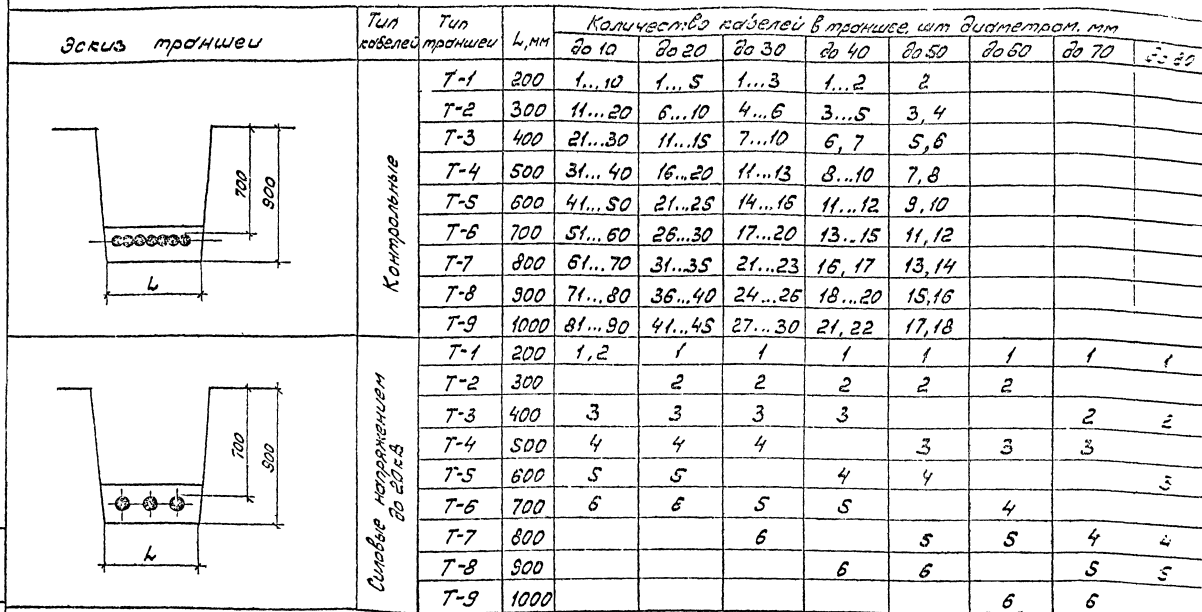 Эскиз траншеи Тип кабелей Тип траншеи L, мм Количество кабелей в траншее, шт диаметром, мм
до 10 до 20 до 30 до 40 до 50 до 60 до 70 до 80
700 900
L
Контрольные
Т-1 200 1...10 1...5 1...3 1...2 2
Т-2 300 11...20 6...10 4...6 3...5 3, 4
Т-3 400 21...30 11...15 7...10 6, 7 5,6
Т-4 500 31...40 16...20 11...13 8...10 7,8
Т-5 600 41...50 21...25 14...16 11...12 9,10
Т-6 700 51...60 26...30 17...20 13...15 11,12
Т-7 800 61...70 31...35 21...23 16, 17 13,14
Т-8 900 71...80 36...40 24...26 18...20 15,16
Т-9 1000 81...90 41...45 27...30 21,22 17,18
700 900
L
Силовые напряжением до 20 кВ
Т-1 200 1,2 1 1 1 1 1 1 1
Т-2 300 2 2 2 2 2
Т-3 400 3 3 3 3 2 2
Т-4 500 4 4 4 3 3 3
Т-5 600 5 5 4 4 3
Т-6 700 6 6 5 5 4
Т-7 800 6 5 5 4 4
Т-8 900 6 6 5 5
Т-9 1000 6 6